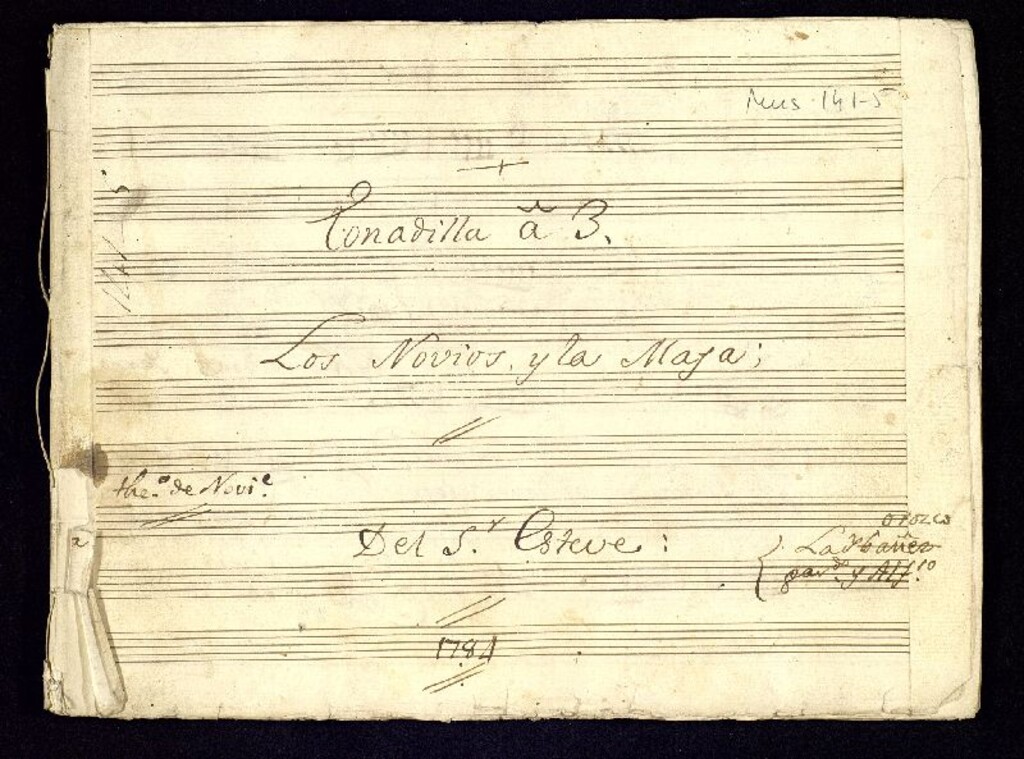 Mus 141-5
Tonadilla à 3.
Los Novios, y la Maja;
the.º de Novi.e
Del S.r Esteve:
orozco
La Ybañez
gar.do y Alf.so
1784